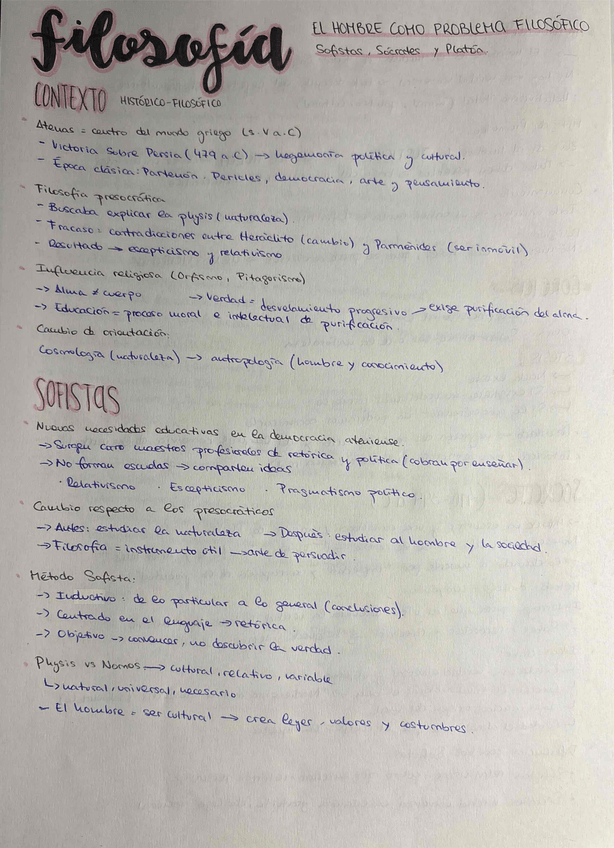 filosofía
EL HOMBRE COMO PROBLEMA FILOSÓFICO
Sofistas, Sócrates y Platón.
CONTEXTO HISTÓRICO-FILOSÓFICO
· Atenas = centro del mundo griego (s. V a.C)
- Victoria sobre Persia (479 a.C) → hegemonía política y cultural.
- Época clásica: Partenón. Pericles, democracia, arte y pensamiento.
· Filosofía presocrática
- Buscaba explicar la physis (naturaleza)
- Fracaso: contradicciones entre Heráclito (cambio) y Parménides (ser inmóvil)
- Resultado → escepticismo y relativismo
· Influencia religiosa (Orfismo, Pitagorismo)
→ Alma ≠ cuerpo → Verdad = desvelamiento progresivo → exige purificación del alma.
→ Educación = proceso moral e intelectual de purificación.
· Cambio de orientación:
Cosmología (naturaleza) → antropología (hombre y conocimiento)
SOFISTAS
· Nuevas necesidades educativas en la democracia ateniense.
→ Surgen como maestros profesionales de retórica y política (cobran por enseñar).
→ No forman escuelas → comparten ideas
· Relativismo · Escepticismo · Pragmatismo político.
· Cambio respecto a los presocráticos
→ Antes: estudiar la naturaleza → Después: estudiar al hombre y la sociedad.
→ Filosofía = instrumento útil → arte de persuadir.
· Método Sofista:
→ Inductivo: de lo particular a lo general (conclusiones).
→ Centrado en el lenguaje → retórica.
→ Objetivo → convencer, no descubrir la verdad.
· Physis vs Nomos → cultural, relativo, variable
↳ natural, universal, necesario
- El hombre = ser cultural → crea leyes, valores y costumbres.